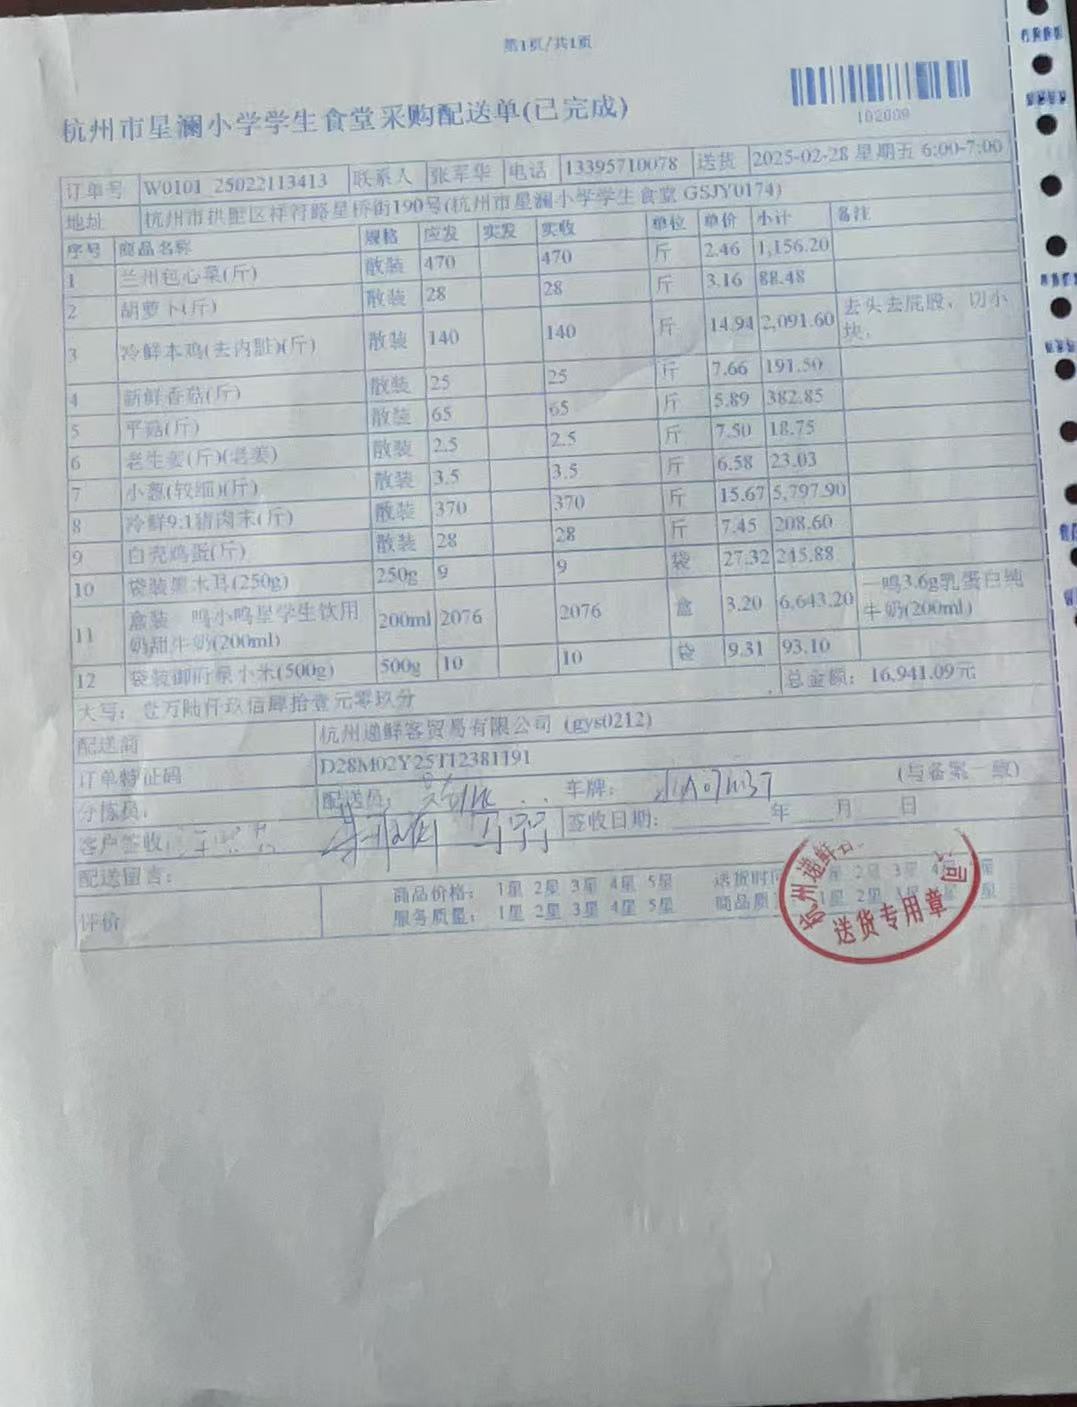 第1页/共1页
102009
杭州市星澜小学学生食堂采购配送单(已完成)
订单号 W0101_25022113413 联系人 张军华 电话 13395710078 送货 2025-02-28 星期五 6:00-7:00
地址 杭州市拱墅区祥符路星桥街190号(杭州市星澜小学学生食堂 GSJY0174)
序号 商品名称 规格 应发 实发 实收 单位 单价 小计 备注
1 兰州包心菜(斤) 散装 470 470 斤 2.46 1,156.20
2 胡萝卜(斤) 散装 28 28 斤 3.16 88.48
3 冷鲜本鸡(去内脏)(斤) 散装 140 140 斤 14.94 2,091.60 去头去屁股，切小块。
4 新鲜香菇(斤) 散装 25 25 斤 7.66 191.50
5 平菇(斤) 散装 65 65 斤 5.89 382.85
6 老生姜(斤)(老姜) 散装 2.5 2.5 斤 7.50 18.75
7 小葱(较细)(斤) 散装 3.5 3.5 斤 6.58 23.03
8 冷鲜9:1猪肉末(斤) 散装 370 370 斤 15.67 5,797.90
9 白壳鸡蛋(斤) 散装 28 28 斤 7.45 208.60
10 袋装黑木耳(250g) 250g 9 9 袋 27.32 245.88
11 盒装一鸣小鸣星学生饮用奶甜牛奶(200ml) 200ml 2076 2076 盒 3.20 6,643.20 一鸣3.6g乳蛋白纯牛奶(200ml)
12 袋装御府泉小米(500g) 500g 10 10 袋 9.31 93.10
总金额：16,941.09元
大写：壹万陆仟玖佰肆拾壹元零玖分
配送商 杭州递鲜客贸易有限公司 (gys0212)
订单特征码 D28M02Y25T12381191
分拣员： 配送员： 车牌： (与备案一致)
客户签收： 签收日期： 年 月 日
配送留言：
评价 商品价格： 1星 2星 3星 4星 5星 送货时间 星 2星 3星 4星
服务质量： 1星 2星 3星 4星 5星 商品质 1星 2星 3星
杭州递鲜 司
送货专用章